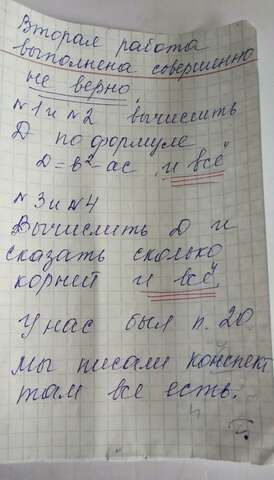 Вторая работа
выполнена совершенно
не верно.
№1 и №2 вычислить
D по формуле
D = в² - ас „и всё"
№3 и №4
Вычислить D и
сказать сколько
корней и всё"
У нас был п. 20
Мы писали конспект
там все есть.